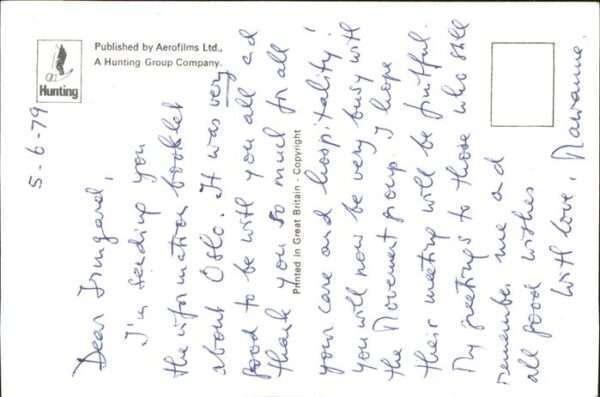 Published by Aerofilms Ltd.,
A Hunting Group Company.
Hunting
Printed in Great Britain - Copyright
5-6-79
Dear Irmgard,
I'm sending you
the information booklet
about Oslo. It was very
good to be with you all ad
thank you so much for all
your care and hospitality!
you will now be very busy with
the Movement group. I hope
their meeting will be fruitful.
My greetings to those who still
remember me ad
all good wishes
With love, Marianne.